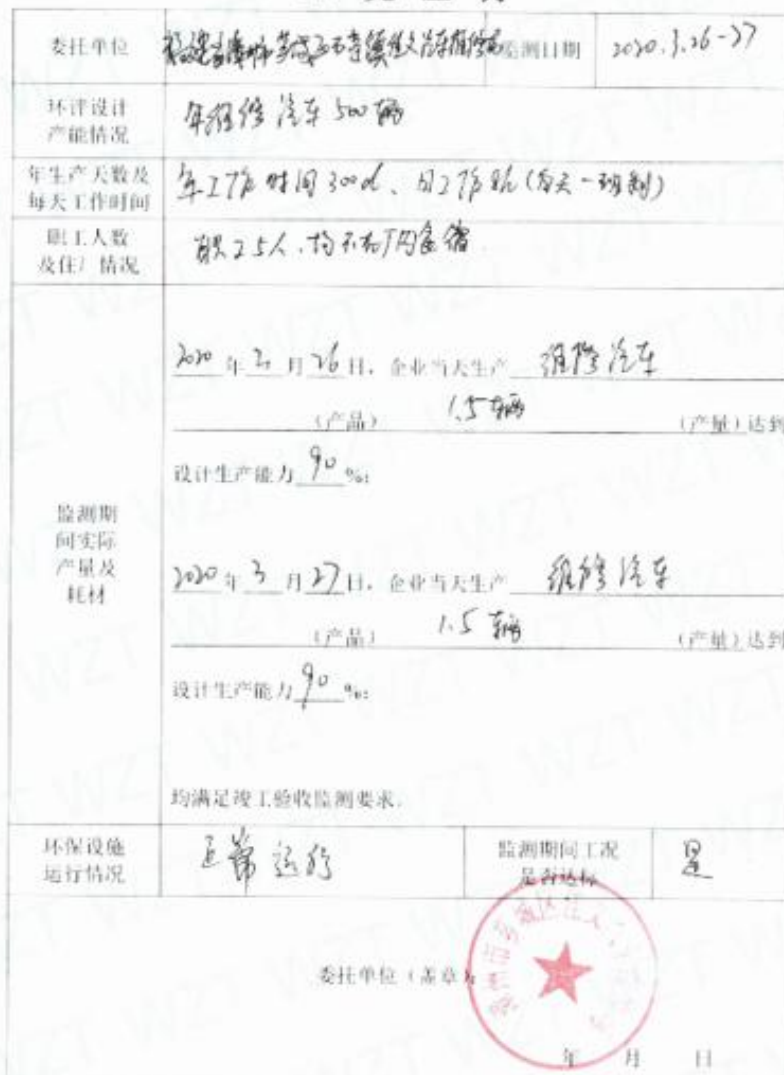 委托单位
监测日期 2020.3.26-27
环评设计
产能情况
年维修汽车500辆
年生产天数及
每天工作时间
年工作时间300d、日工作8h(每天一班制)
职工人数
及住厂情况
职工5人,均不在厂内食宿
监测期
间实际
产量及
耗材
2020年3月26日,企业当天生产 维修汽车
(产品) 1.5辆 (产量)达到
设计生产能力90%;
2020年3月27日,企业当天生产 维修汽车
(产品) 1.5辆 (产量)达到
设计生产能力90%;
均满足竣工验收监测要求。
环保设施
运行情况
正常运行
监测期间工况
是否达标
是
委托单位(盖章)
年 月 日
WZT